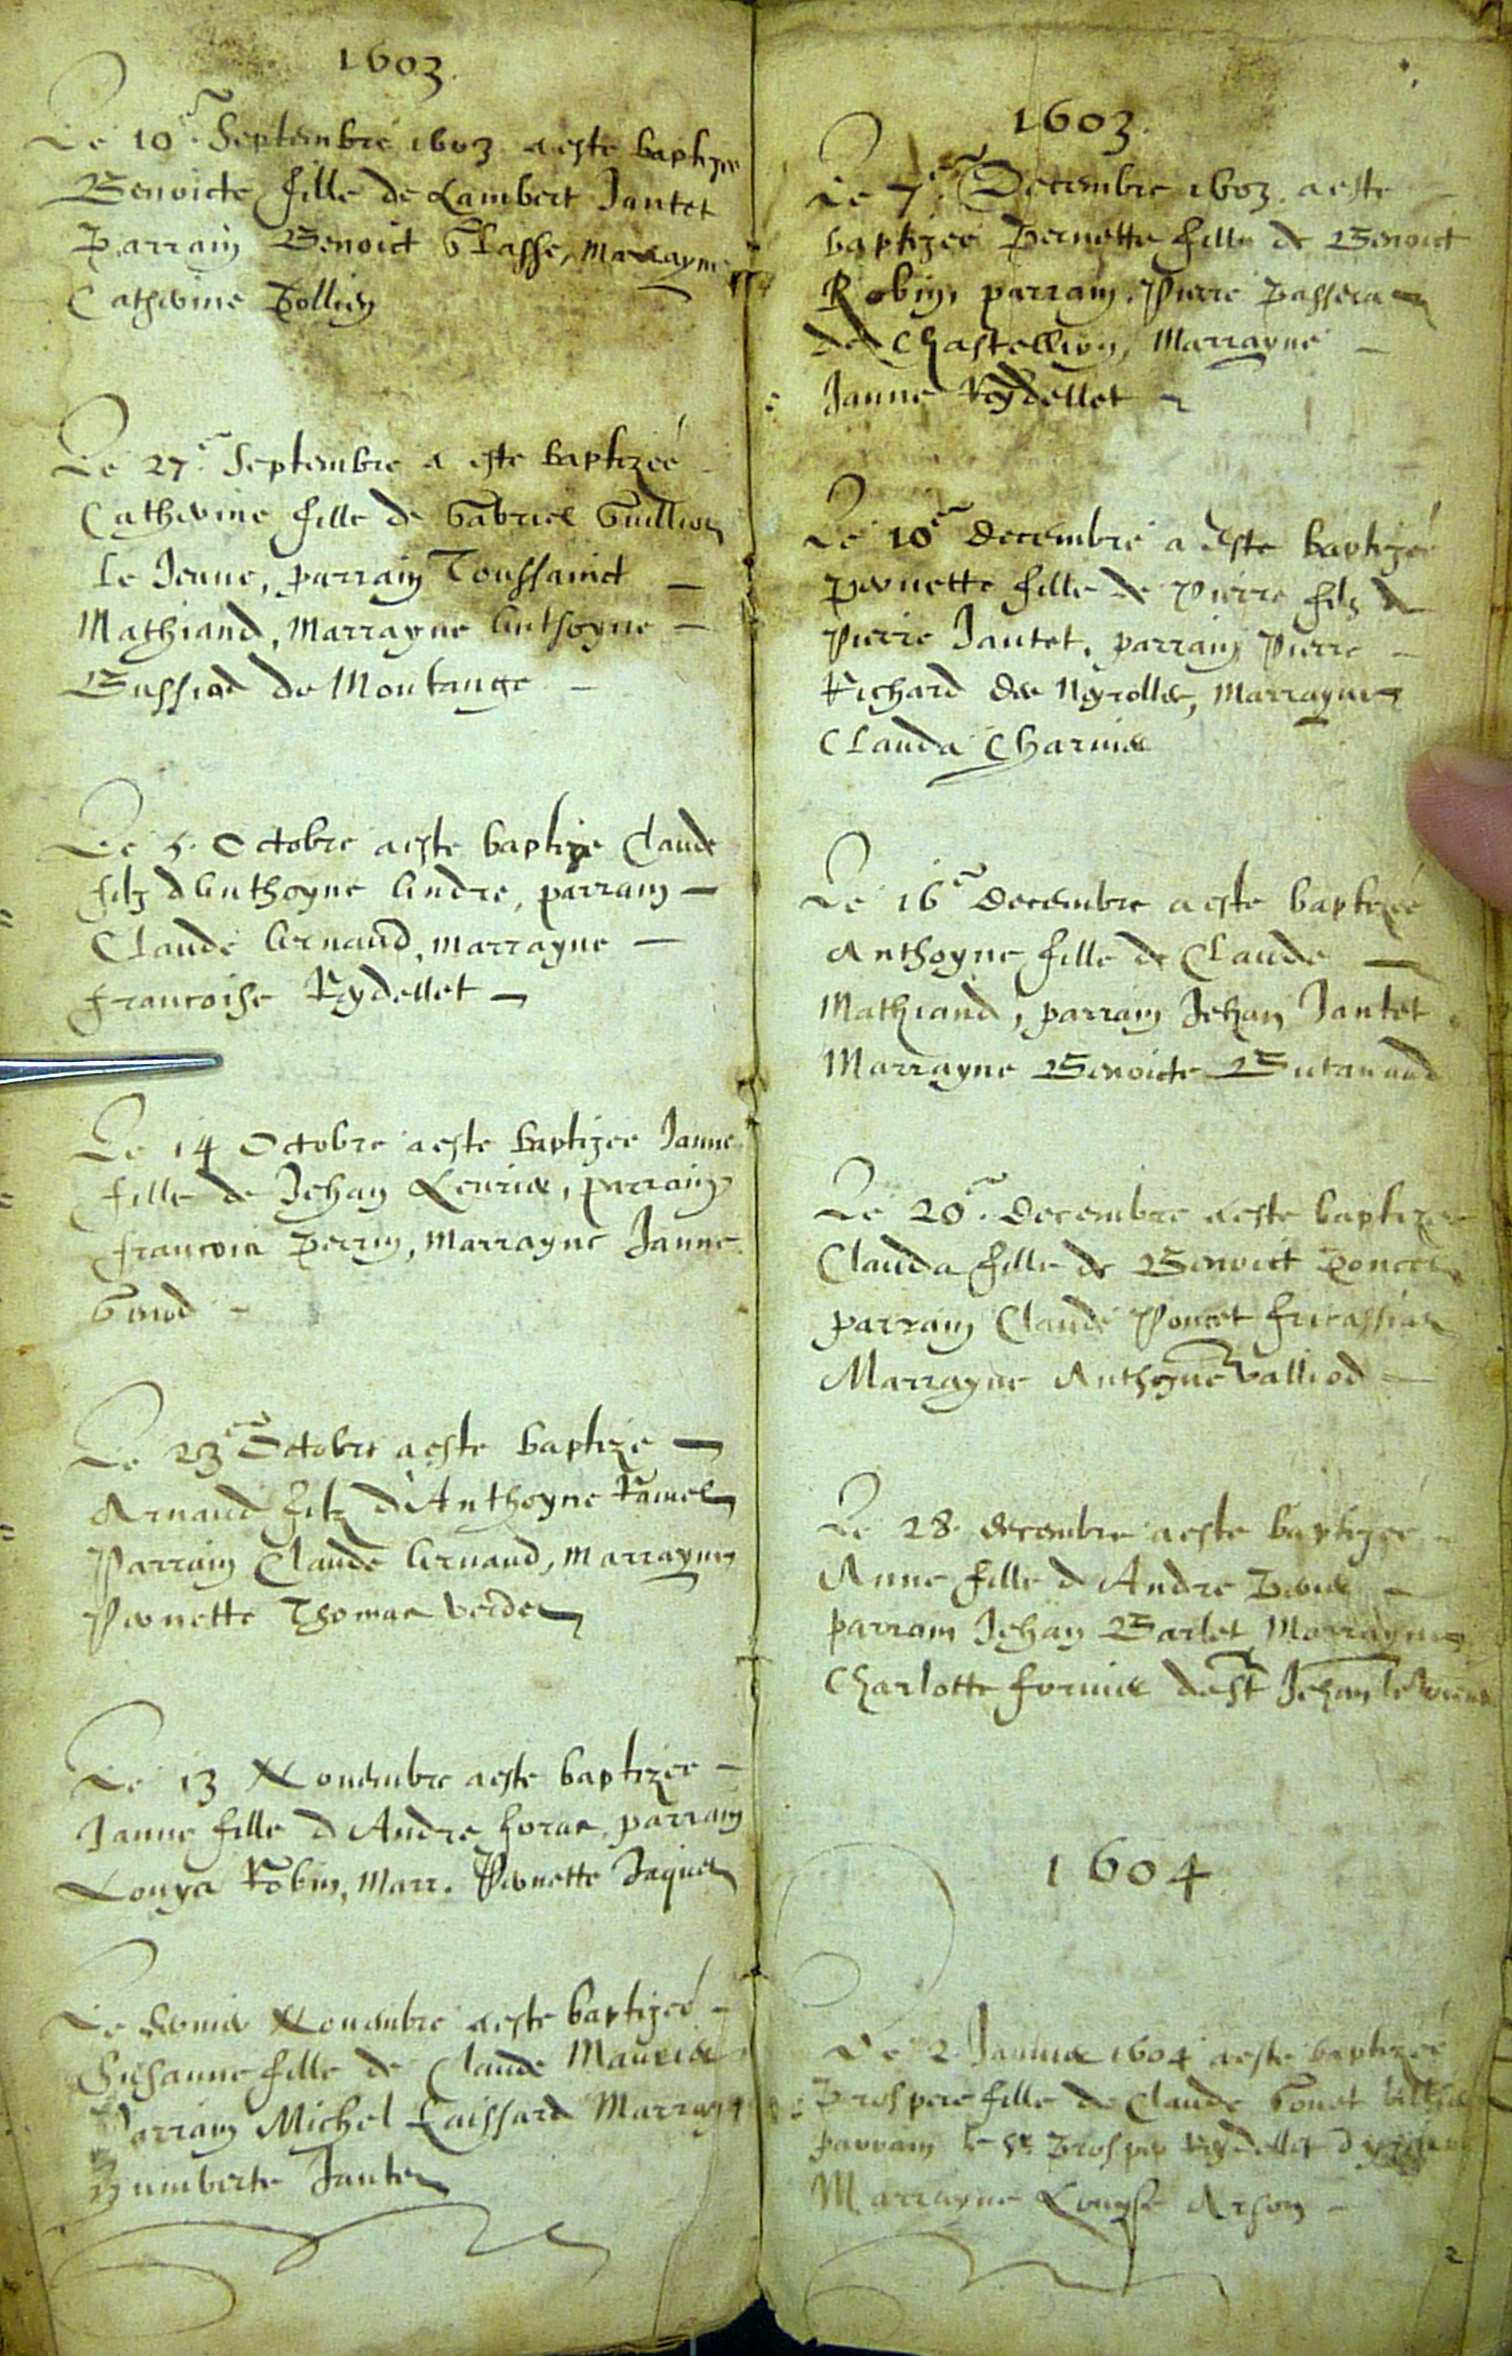 1603.
Le 10e. Septembre 1603 a este baptizee
Benoicte fille de Lambert Jantet
Parrain Benoict Glasse, Marrayne
Catherine Pollien
Le 27e. Septembre a este baptizeé
Catherine fille de Gabriel Guillion
le Jeune, parrain Toussainct
Mathiand, Marrayne Anthoyne
Bussiod de Montange
Le 5. Octobre a este baptize Claude
filz d Anthoyne Andre, parrain
Claude Arnaud, marrayne
francoise Reydellet
Le 14 Octobre a este baptizee Janne
fille de Jehan Levrier, parrain
francois Perrin, Marrayne Janne
Genod
Le 23e Octobre a este baptize
Arnaud filz d'Anthoyne Ramel
Parrain Claude Arnaud, Marrayne
Pernette Thomas Verdet
Le 13 Novembre a este baptizée
Janne fille d Andre foras, parrain
Louys Robin, Marr. Pernette Jaquet
Le dernier Novembre a este baptizeé
Susanne fille de Claude Maurier
Parrain Michel Caissard Marrayne
Humberte Jantet
1603.
Le 7e. Decembre 1603. a este
baptizeé Pernette fille de Benoict
Robin, parrain, Pierre Passerat
de Chastellion, Marrayne
Janne Reydellet
Le 10e decembre a este baptizeé
Pernette fille de Pierre filz de
Pierre Jantet, parrain Pierre
Richard des Neyrolles, Marrayne
Clauda Charnier
Le 16e decembre a este baptizeé
Anthoyne fille de Claude
Mathiand, parrain Jehan Jantet
Marrayne Benoicte
Le 20e. decembre a este baptizee
Clauda fille de Benoict Poncet
parrain Claude Poncet
Marrayne Anthoyne Valliod
Le 28. decembre a este baptizeé
Anne fille d Andre
parrain Jehan Barlet Marrayne
Charlotte fornier de St Jehan le vieux
1604
Le 2. Janvier 1604 a este baptizeé
Prospere fille de Claude Gonet
parrain le Sr. Prosper Reydellet
Marrayne Louyse Arson
2